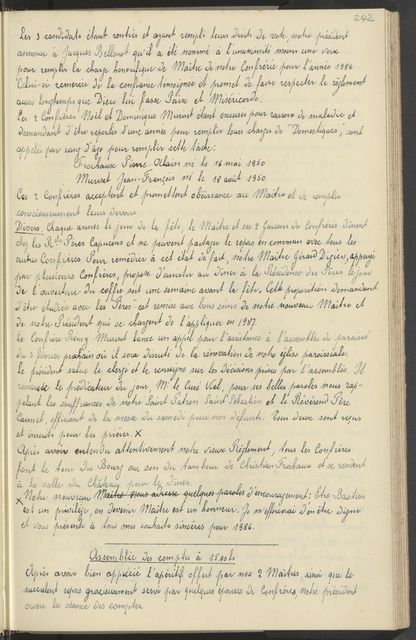 242
Les 3 candidats étant rentrés et ayant rempli leurs droits de vote, notre président
annonce à Jacques Bellenot qu'il a été nommé à l'unanimité moins une voix
pour remplir la charge honorifique de Maître de notre Confrérie pour l'année 1986
Celui-ci remercie de la confiance témoignée et promet de faire respecter le règlement
aussi longtemps que Dieu lui fasse Paix et Miséricorde.
Les 2 Confrères Noël et Dominique Murmet étant excusés pour raisons de maladie et
demandant d'être reportés d'une année pour remplir leurs charges de "Domestiques", sont
appelés par rang d'âge pour remplir cette tâche:
Frochaux Pierre-Alain né le 16 mai 1950
Muriset Jean-François né le 18 août 1950
Ces 2 Confrères acceptent et promettent obéissance au Maître et de remplir
consciencieusement leurs devoirs.
Divers. Chaque année le jour de la fête, le Maître et ses 2 garçons de Confrérie dînent
chez les Rds Pères Capucins et ne peuvent partager le repas en commun avec tous les
autres Confrères. Pour remédier à cet état de fait, notre Maître Gérard Digier, appuyé
par plusieurs Confrères, propose d'annuler ce dîner à la Résidence des Pères, le jour
de l'ouverture du coffre soit une semaine avant la fête. Cette proposition demandant
d'être étudiée avec les "Pères" est remise aux bons soins de notre nouveau Maître et
de notre Président qui se chargent de l'appliquer en 1987.
Le Confrère Rémy Muriset lance un appel pour l'assistance à l'assemblée de paroisse
du 3 février prochain où il sera discuté de la rénovation de notre église paroissiale.
Le président salue le clergé et le renseigne sur les décisions prises par l'assemblée. Il
remercie le prédicateur du jour, Mr le Curé Vial, pour ses belles paroles nous rap-
pelant les souffrances de notre Saint Patron Saint Sébastien et le Révérend Père
officiant de la messe du samedi pour nos défunts. Tous deux sont reçus
et inscrits pour les prières. X
Après avoir entendu attentivement notre vieux Règlement, tous les Confrères
font le tour du Bourg au son du tambour de Christian Frochaux et se rendent
à la salle du Château pour le Dîner.
X Notre nouveau Maître nous adresse quelques paroles d'encouragement: Etre Bastien
est un privilège, en devenir Maître est un honneur. Je m'efforcerai d'en être digne
et vous présente à tous mes souhaits sincères pour 1986.
Assemblée des comptes à 15.00h
Après avoir bien apprécié l'apéritif offert par nos 2 Maîtres, ainsi que le
succulent repas gracieusement servi par quelques épouses de Confrères, notre président
ouvre la séance des comptes.